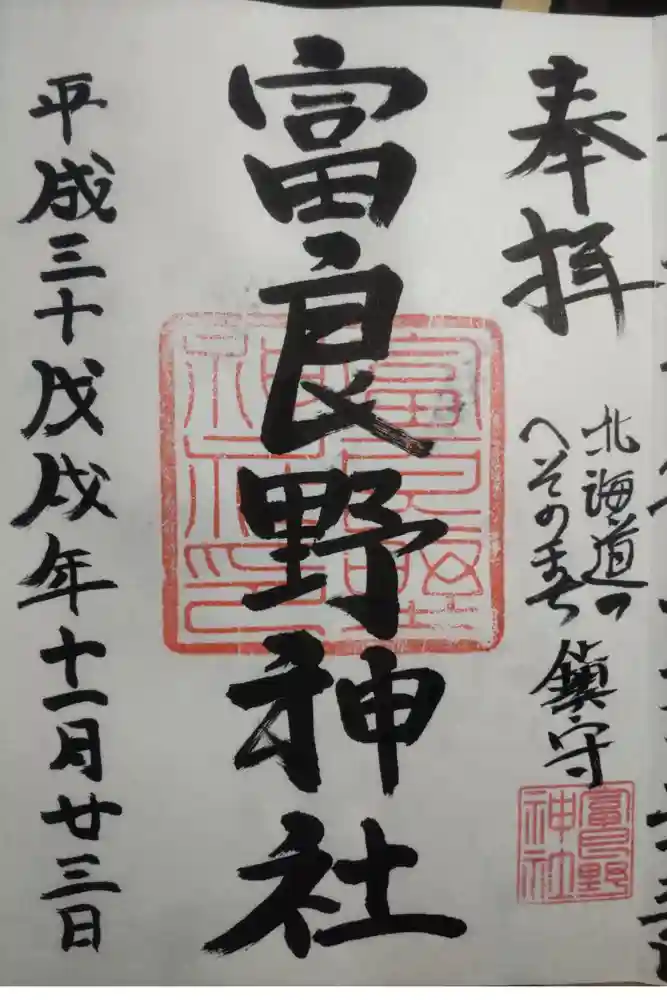 奉拝
北海道の
へそのまち
鎮守
富良野
神社
富良野神社
富良野
神社印
平成三十戊戌年十一月廿三日